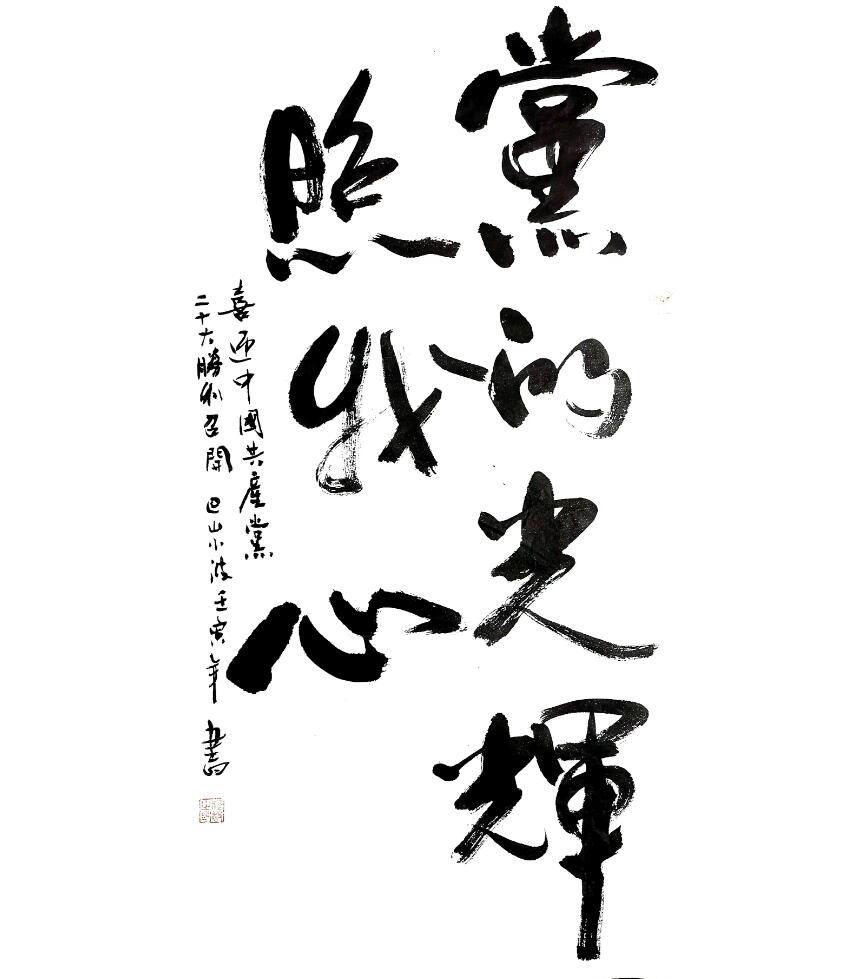 黨的光輝
照我心
喜迎中國共產黨
二十大勝利召開 巴山小波壬寅年 書